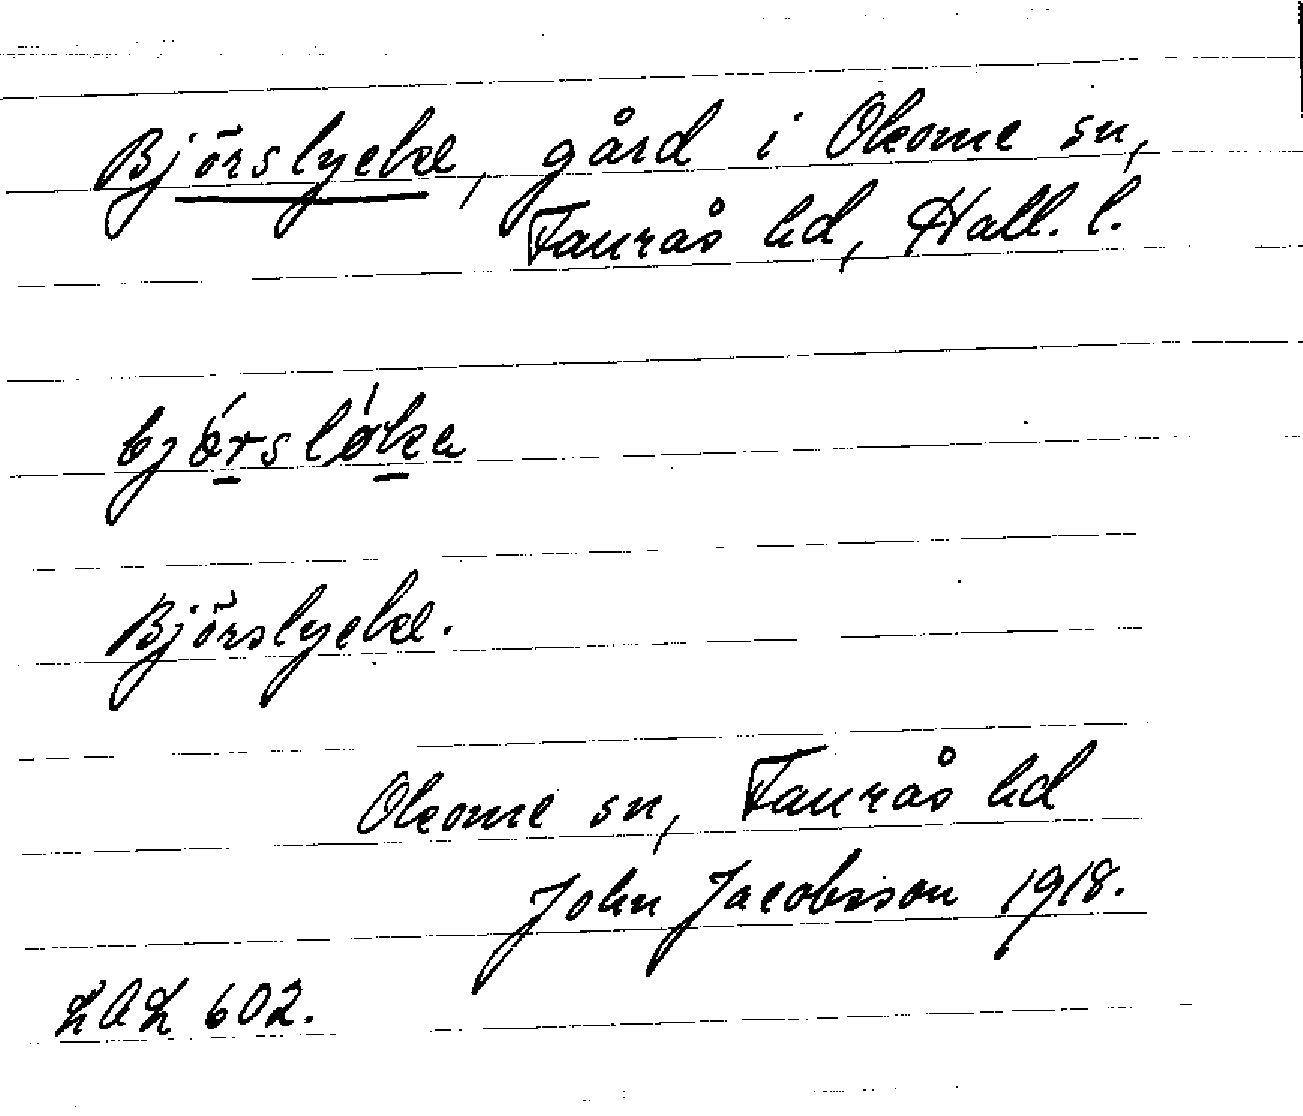 Björslycke, gård i Okome sn,
Faurås hd, Hall. l.
bjórslǿka
Björslycke.
Okome sn, Faurås hd
John Jacobsson 1918.
LAL 602.